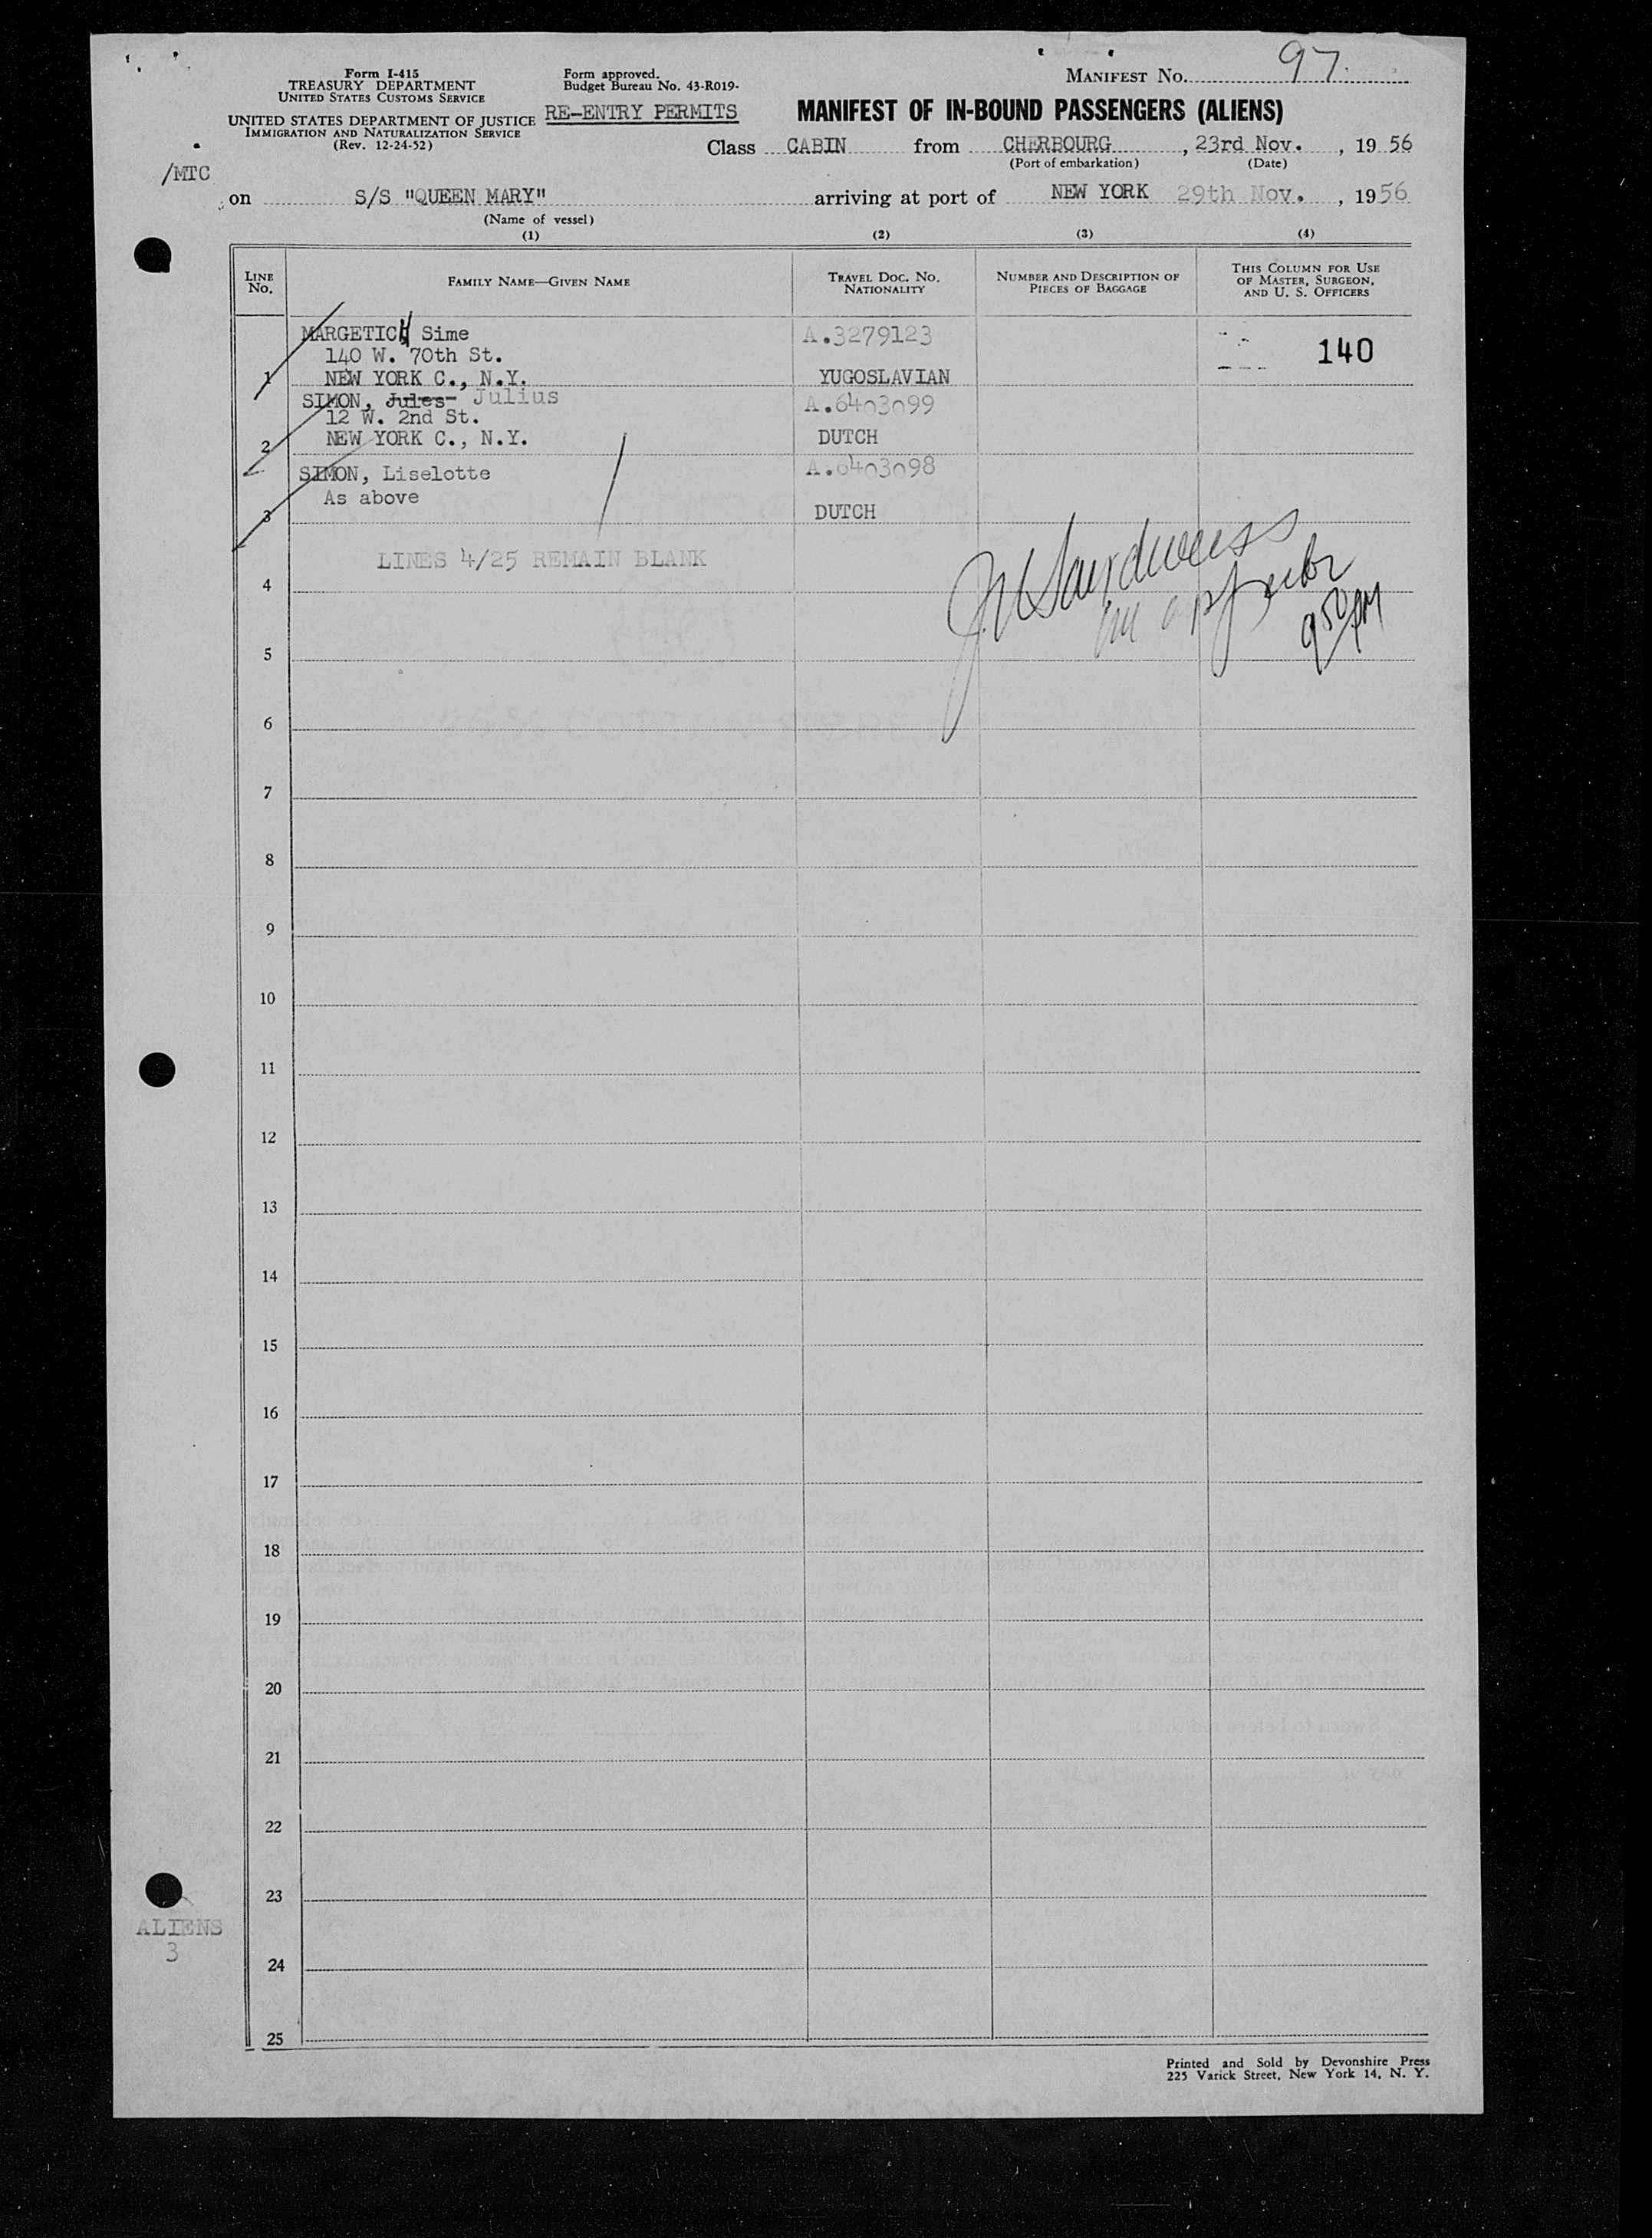 97
Form I-415
TREASURY DEPARTMENT
UNITED STATES CUSTOMS SERVICE
UNITED STATES DEPARTMENT OF JUSTICE
IMMIGRATION AND NATURALIZATION SERVICE
(Rev. 12-24-52)
Form approved.
Budget Bureau No. 43-R019-
RE-ENTRY PERMITS
MANIFEST No.
MANIFEST OF IN-BOUND PASSENGERS (ALIENS)
Class CABIN from CHERBOURG, 23rd Nov., 1956
(Port of embarkation) (Date)
/MTC
on S/S "QUEEN MARY" arriving at port of NEW YORK 29th Nov., 1956
(Name of vessel)
(1) (2) (3) (4)
LINE No.
FAMILY NAME—GIVEN NAME
TRAVEL DOC. No. NATIONALITY
NUMBER AND DESCRIPTION OF PIECES OF BAGGAGE
THIS COLUMN FOR USE OF MASTER, SURGEON, AND U. S. OFFICERS
MARGETICH Sime A.3279123 140
140 W. 70th St.
1 NEW YORK C., N.Y. YUGOSLAVIAN
SIMON, Jules Julius A.6403099
12 W. 2nd St.
2 NEW YORK C., N.Y. DUTCH
SIMON, Liselotte A.6403098
As above
3 DUTCH
LINES 4/25 REMAIN BLANK
950PM
4
5
6
7
8
9
10
11
12
13
14
15
16
17
18
19
20
21
22
23
24
25
ALIENS
3
Printed and Sold by Devonshire Press
225 Varick Street, New York 14, N. Y.